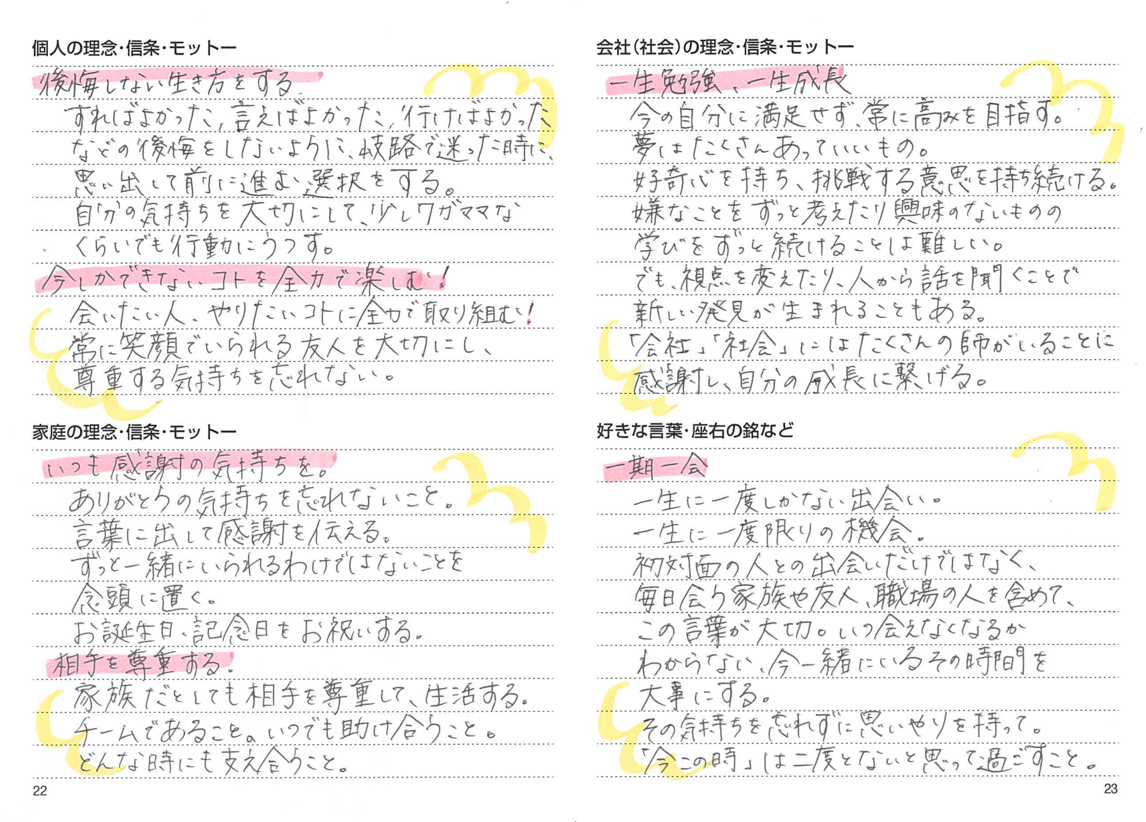 個人の理念・信条・モットー
後悔しない生き方をする
すればよかった、言えばよかった、行けばよかった
などの後悔をしないように、岐路で迷った時に、
思い出して前に進む選択をする。
自分の気持ちを大切にして、少しワガママな
くらいでも行動にうつす。
今しかできないコトを全力で楽しむ!
会いたい人、やりたいコトに全力で取り組む!
常に笑顔でいられる友人を大切にし、
尊重する気持ちを忘れない。
家庭の理念・信条・モットー
いつも感謝の気持ちを。
ありがとうの気持ちを忘れないこと。
言葉に出して感謝を伝える。
ずっと一緒にいられるわけではないことを
念頭に置く。
お誕生日、記念日をお祝いする。
相手を尊重する。
家族だとしても相手を尊重して、生活する。
チームであること。いつでも助け合うこと。
どんな時にも支え合うこと。
22
会社(社会)の理念・信条・モットー
一生勉強、一生成長
今の自分に満足せず、常に高みを目指す。
夢はたくさんあっていいもの。
好奇心を持ち、挑戦する意思を持ち続ける。
嫌なことをずっと考えたり興味のないものの
学びをずっと続けることは難しい。
でも、視点を変えたり、人から話を聞くことで
新しい発見が生まれることもある。
「会社」「社会」にはたくさんの師がいることに
感謝し、自分の成長に繋げる。
好きな言葉・座右の銘など
一期一会
一生に一度しかない出会い。
一生に一度限りの機会。
初対面の人との出会いだけではなく、
毎日会う家族や友人、職場の人を含めて、
この言葉が大切。いつ会えなくなるか
わからない、今一緒にいるその時間を
大事にする。
その気持ちを忘れずに思いやりを持って。
「今この時」は二度とないと思って過ごすこと。
23